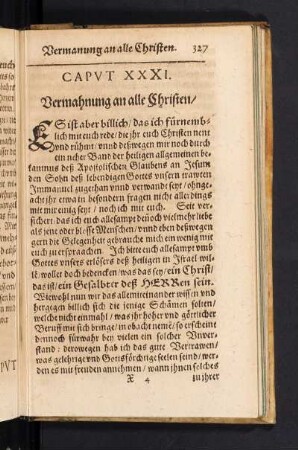 Vermanung an alle Christen. 327
CAPVT XXXI.
Vermahnung an alle Christen/
ES ist aber billich/ das ich fürnemb-
lich mit euch rede/ die jhr euch Christen nent
vnd rühmt/ vnnd deßwegen mir noch durch
ein neher Band der heiligen allgemeinen be-
kantnus deß Apostolischen Glaubens an Jesum
den Sohn deß lebendigen Gottes vnsern trawten
Immanuel zugethan vnnd verwandt seyt/ ohnge-
acht jhr etwa in besondern fragen nicht aller dings
mit mir einig seyt/ noch ich mit euch. Seit ver-
sichert/ das ich euch allesampt denoch vielmehr liebe
als jene oder blosse Menschen/ vnnd eben deßwe-
gern die Gelegenheit gebrauche mich ein wenig mit
euch zu ersprachen. Ich bitte euch allesampt vmb
Gottes vnsers erlösers deß heiligen in Israel will-
len/ wollet doch bedencken/ was das sey/ ein Christ/
das ist/ ein Gesalbter deß HERRen sein.
Wiewohl nun wir das alle miteinander wissen/ vnd
hergegen billich sich die jenige Schämen solten/
welche nicht einmahl/ was jhr hoher vnd göttlicher
Beruff mit sich bringe/ in obacht neme/ so erscheint
dennoch fürwahr bey vielen ein solcher Vnver-
stand: derowegen hab ich das gute Vertrawen/
was gelehrige vnd Gottsförchtige seelen seind/ wer-
den es mit freuden annehmen/ wann jhnen solches
X 4 zu jhrer